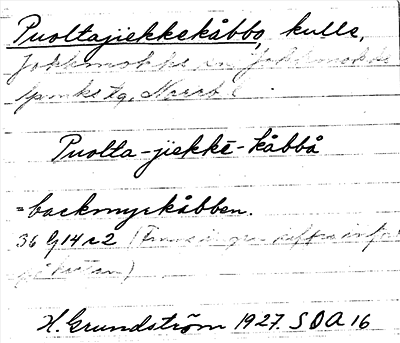 Puoltajiekkekåbbo, kulle,
Jokkmokks sn Jokkmokks
Norrb. l.
Puolta-jiekkē-kåbbå
=backmyrkåbben.
36 G14 r2 (Finns
H. Grundström 1927. SOA 16